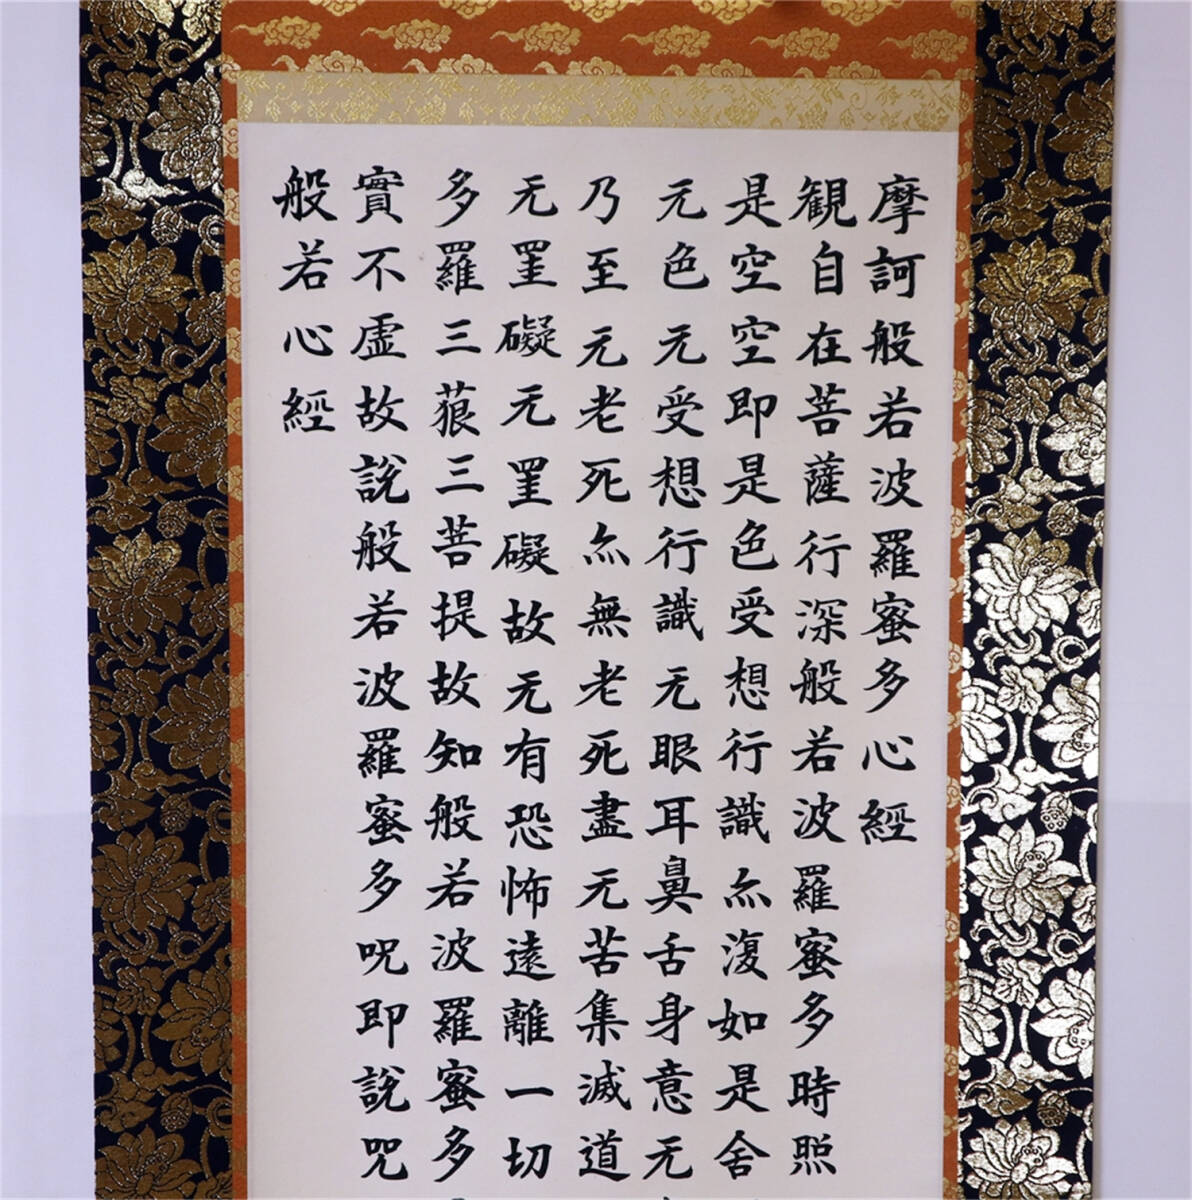 摩訶般若波羅蜜多心經
観自在菩薩行深般若波羅蜜多時照
是空空即是色受想行識亦復如是舍
无色无受想行識无眼耳鼻舌身意无
乃至无老死亦無老死盡无苦集滅道
无罣礙无罣礙故无有恐怖遠離一切
多羅三藐三菩提故知般若波羅蜜多
實不虚故説般若波羅蜜多呪即説咒
般若心經